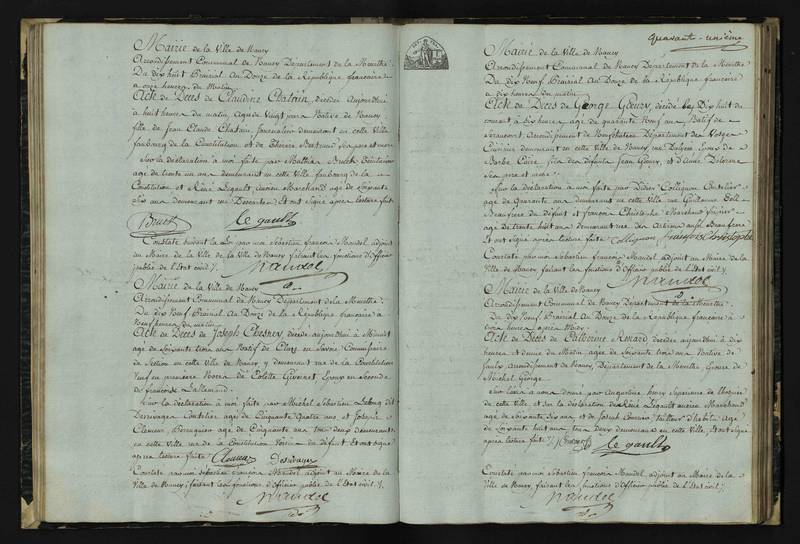 Mairie de la Ville de Nancy
Arrondissement Communal de Nancy Département de la Meurthe
Du dix huit Prairial An Douze de la République francaise
a onze heures du Matin
Acte de Deces de Claudine Chatrin, decedée Aujourdhui
à huit heures du matin, agée de Vingt jours Native de Nancy
fille de Jean Claude Chatrin Journalier demeurant en cette Ville
faubourg de la Constitution, et de Therese Bertrand ses pere et mere
Sur la déclaration à moi faite par Mathias Bruck
agé de trente un ans demeurant en cette Ville faubourg de la
Constitution et Réné Legault ancien Marchand agé de soixante
six ans demeurant rue Descartes. Et ont signé après lecture faite
Bruck le gault
Constaté suivant la Loi par moi Sébastien françois Mandel adjoint
au Maire de la Ville de Nancy faisant les fonctions d'officier
public de l'Etat civil
Mandel
Mairie de la Ville de Nancy
Arrondissement Communal de Nancy Département de la Meurthe
Du dix Neuf Prairial An Douze de la République francaise à
Neuf heures du matin
Acte de Deces de Joseph Chesney, décédé aujourdhui à Minuit
agé de soixante trois ans Natif de Cluny en Savoie, Commissaire
de Section en cette Ville de Nancy y demeurant rue de la Constitution
Veuf en premiere Noces de Colette Epoux en Seconde
de francoise Lallemand
Sur la déclaration à moi faite par Michel Sébastien dit
Desruager Coutelier agé de Cinquante Quatre ans et Joseph
Cleneur Perruquier agé de Cinquante ans tous deux demeurant
en cette Ville rue de la Constitution Voisin du défunt et ont signé
après lecture faite
Constaté par moi Sébastien francois Mandel adjoint au Maire de la
Ville de Nancy faisant les fonctions d'officier public de l'Etat civil
Mandel
Quarant-unième
Mairie de la Ville de Nancy
Arrondissement Communal de Nancy Département de la Meurthe
Du dix Neuf Prairial An Douze de la République francaise
à dix heures du matin
Acte de Deces de George Goeury, décédé le Dix huit du
courant à dix heures, agé de quarante Neuf ans Natif de
Arrondissement de Neufchateau Département des Vosges
Cuisinier demeurant en cette Ville de Nancy, rue Epoux de
Barbe Caire fils des défunts Jean Goeury, et d'Anne
Ses pere et mere
Sur la déclaration à moi faite par Didier Collignon Coutelier
agé de Quarante ans demeurant en cette Ville rue Guillaume Tell
Beaufrere du défunt et françois Christophe Marchand
agé de trente huit ans demeurant rue des Artisans aussi Beaufrere
Et ont signé après lecture faite Collignon francois Christophe
Constaté par moi Sébastien francois Mandel adjoint au Maire de la
Ville de Nancy faisant les fonctions d'officier public de l'Etat civil
Mandel
Mairie de la Ville de Nancy
Arrondissement Communal de Nancy Département de la Meurthe
Du dix Neuf Prairial An Douze de la République francaise à
trois heures après Midy
Acte de Deces de Catherine Renard décédée aujourdhui à dix
heures et demie du Matin agée de soixante trois ans Native de
Arrondissement de Nancy, Département de la Meurthe, Epouse de
Michel George
de cette Ville, et sur la déclaration de Réné Legault ancien Marchand
agé de soixante six ans, et de Joseph tailleur d'habits agé
de soixante huit ans tous deux demeurant en cette Ville, Et ont signé
après lecture faite le gault
Constaté par moi Sébastien françois Mandel adjoint au Maire de la
Ville de Nancy faisant les fonctions d'officier public de l'Etat civil
Mandel